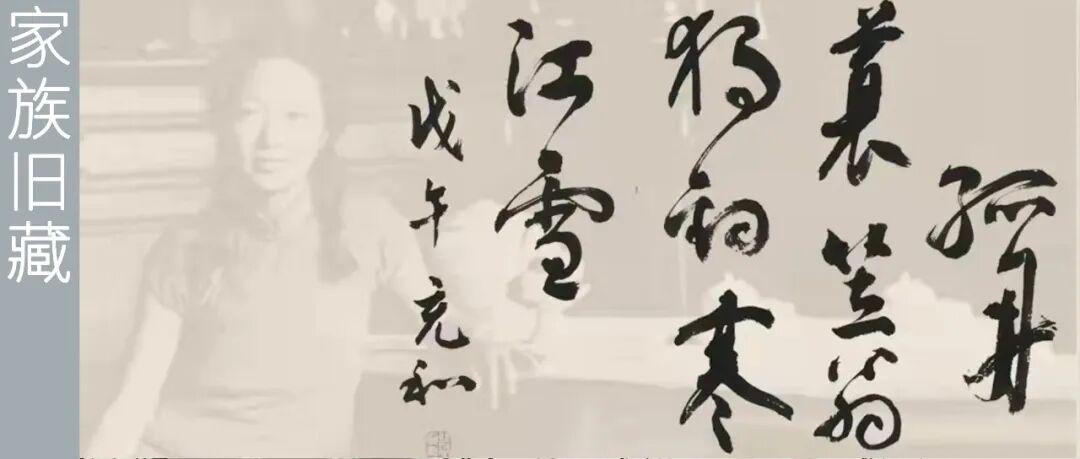 家族旧藏
孤舟
蓑笠翁
獨釣寒
江雪
戊午 充和